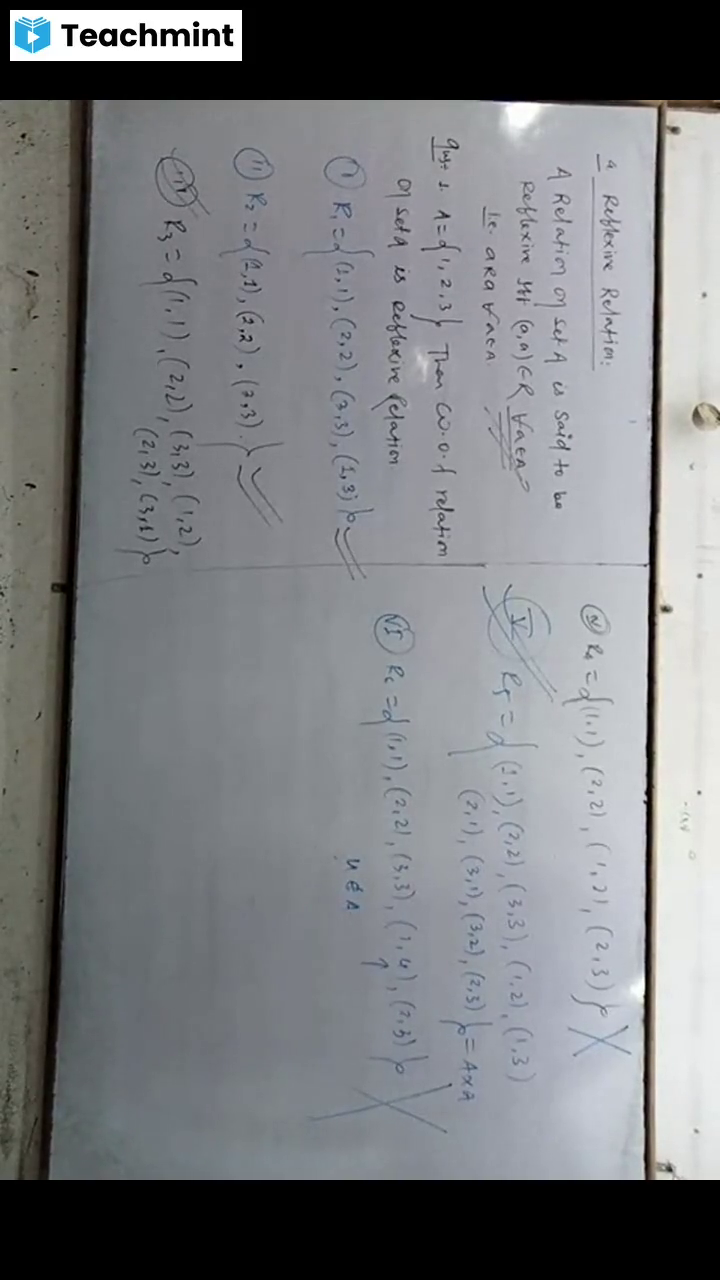 Teachmint
4 Reflexive Relation:
A Relation on set A is said to be
Reflexive iff (a,a) ∈ R ∀ a∈A
i.e. aRa ∀ a∈A.
Ques 1. A = {1, 2, 3}. Then w.o.f relation
on set A is Reflexive Relation
(i) R₁ = {(1,1), (2,2), (3,3), (1,3)}
(ii) R₂ = {(1,1), (2,2), (3,3).}
(iii) R₃ = {(1,1), (2,2), (3,3), (1,2),
(2,3), (3,1)}
(iv) R₄ = {(1,1), (2,2), (1,2), (2,3)}
(V) R₅ = {(1,1), (2,2), (3,3), (1,2), (1,3)
(2,1), (3,1), (3,2), (2,3)} = A×A
(VI) R₆ = {(1,1), (2,2), (3,3), (1,4), (2,3)}
4 ∉ A